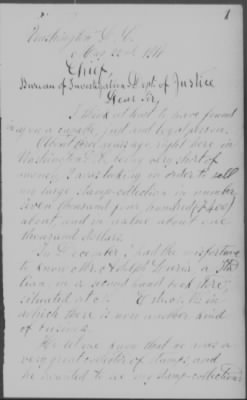 1
Washington D. C.
Aug 22nd, 1911
Chief,
Bureau of Investigation Dept. of Justice
Dear Sir,
I think at last to have found
in you a capable, just and loyal person.
About two years ago, right here in
Washington D.C. being very short of
money, I was looking in order to sell
my large stamp-collection, in number
seven thousand four hundred
about, and in value about one
thousand dollars.
In December I had the misfortune
to know Mr. Adolph
in a second hand book store
situated at
which there is now another kind
of business.
He let me know that he was a
very great collector of stamps, and
he wanted to see my stamp-collection